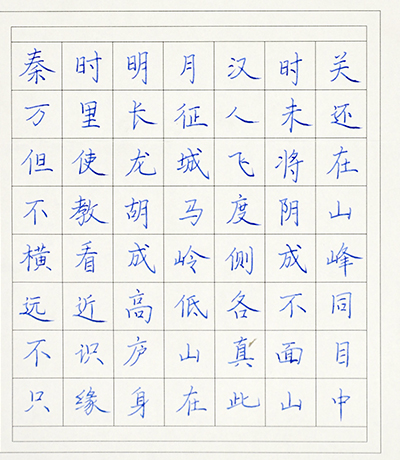 秦时明月汉时关
万里长征人未还
但使龙城飞将在
不教胡马度阴山
横看成岭侧成峰
远近高低各不同
不识庐山真面目
只缘身在此山中